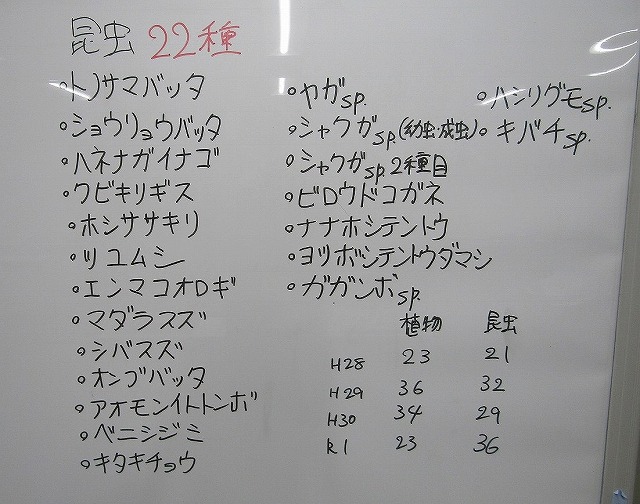 昆虫 22種
○トノサマバッタ
○ショウリョウバッタ
○ハネナガイナゴ
○クビキリギス
○ホシササキリ
○ツユムシ
○エンマコオロギ
○マダラスズ
○シバスズ
○オンブバッタ
○アオモンイトトンボ
○ベニシジミ
○キタキチョウ
○ヤガsp.
○シャクガsp.(幼虫・成虫)
○シャクガsp.2種目
○ビロウドコガネ
○ナナホシテントウ
○ヨツボシテントウダマシ
○ガガンボsp.
○ハシリグモsp.
○キバチsp.
植物 昆虫
H28 23 21
H29 36 32
H30 34 29
R1 23 36